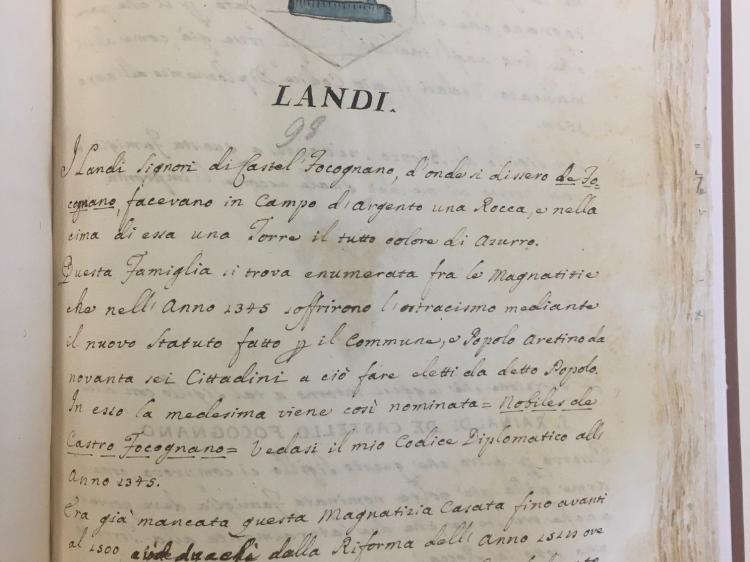 LANDI.
98
I Landi Signori di Castel' Focognano, d'onde si dissero de Fo-
cognano, facevano in Campo d'Argento una Rocca, e nella
cima di essa una Torre il tutto colore di Azurro.
Questa Famiglia si trova enumerata fra le Magnatitie
che nell'Anno 1345 soffrirono l'ostracismo mediante
il nuovo Statuto fatto p il Commune, e Popolo Aretino da
novanta sei Cittadini a ciò fare eletti da detto Popolo.
In esso la medesima viene così nominata= Nobiles de
Castro Focognano= Vedasi il mio Codice Diplomatico all'
Anno 1345.
Era già mancata questa Magnatizia Casata fino avanti
al 1500 dalla Riforma dell'Anno ove